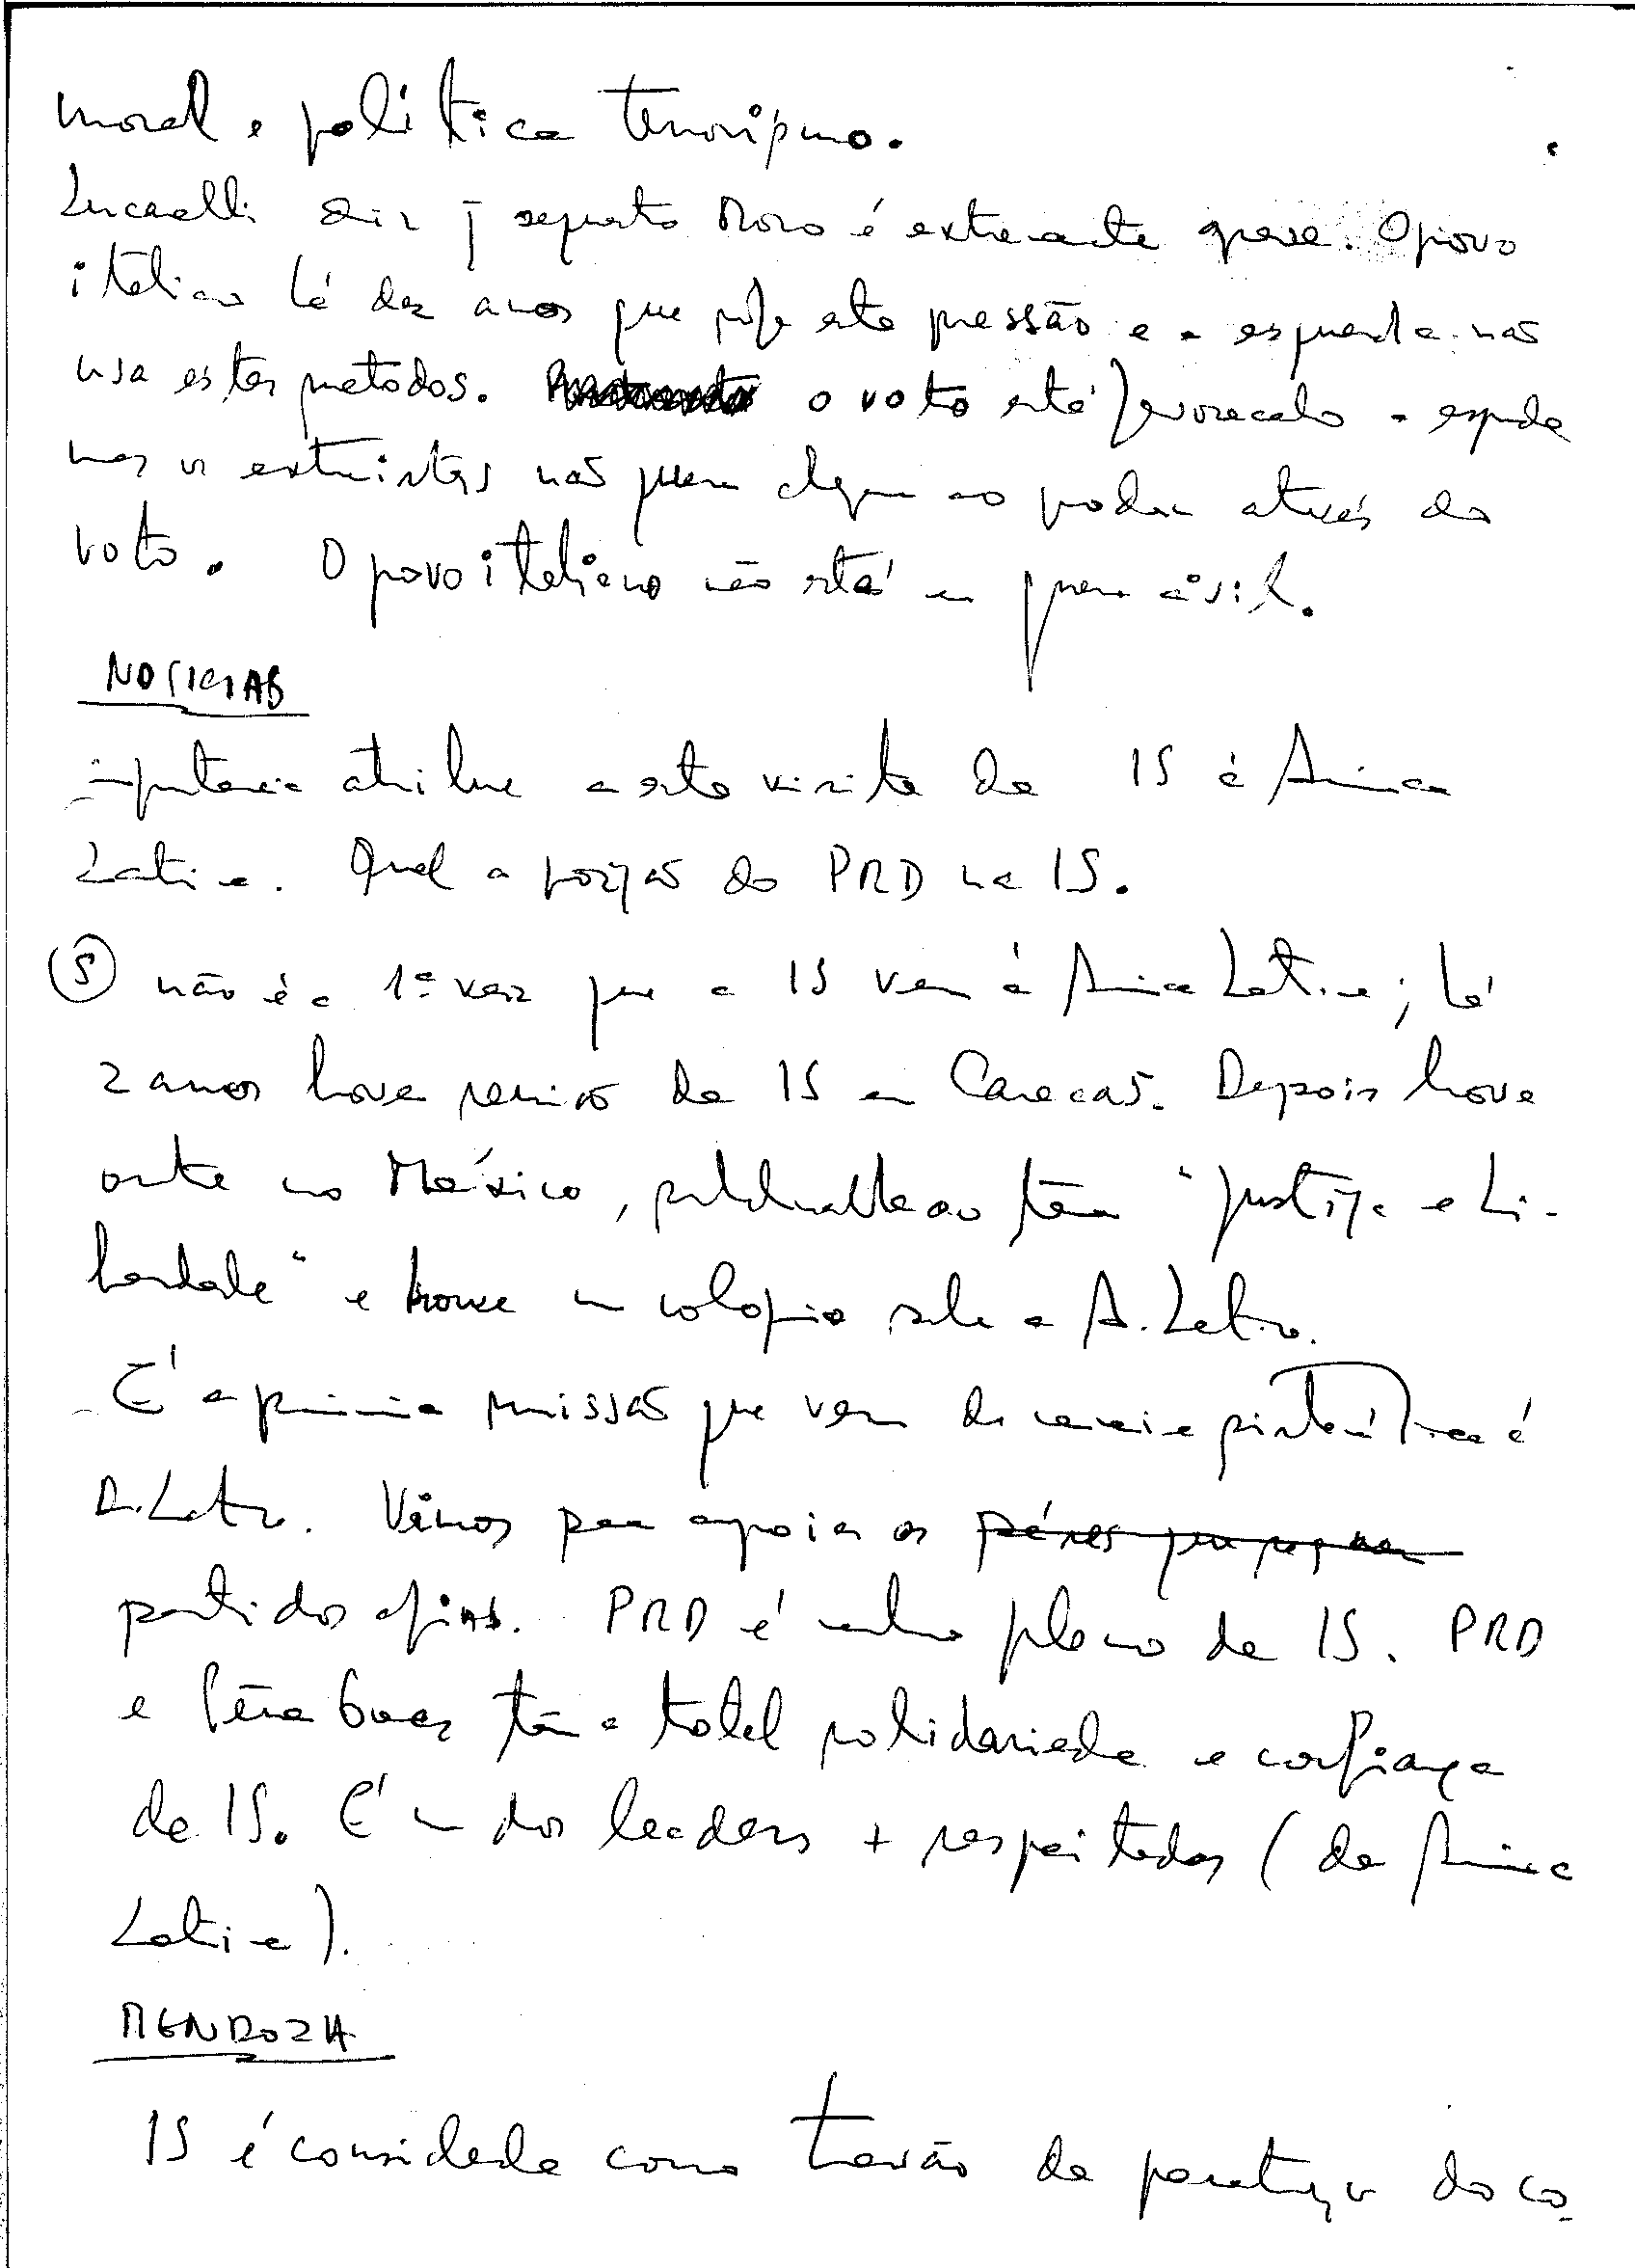 moral e política terrorismo.
Lucarelli diz q sequestro Moro é extremamente grave. O povo
italiano há dez anos que sofre esta pressão e a esquerda não
usa estes metodos. o voto está favorecendo a esquerda
mas os extremistas não querem chegar ao poder através do
voto. O povo italiano não está em guerra civil.
NOTICIAS
importancia atribue a esta visita da IS à América
Latina. Qual a posição do PRD na IS.
(S) não é a 1ª vez que a IS vem à America Latina; há
2 anos houve reunião da IS em Caracas. Depois houve
outra no México, subordinada ao têma "Justiça e Li-
berdade" e houve um coloquio sobre a A. Latina.
É a primeira missão que vem de maneira sistemática à
A. Latina. Vimos para apoiar os
partidos afins. PRD é membro pleno da IS. PRD
e Peña Gomez têm a total solidariedade e confiança
da IS. É um dos leaders + respeitados (da America
Latina).
MENDOZA
IS é considerada como travão da penetração do co-